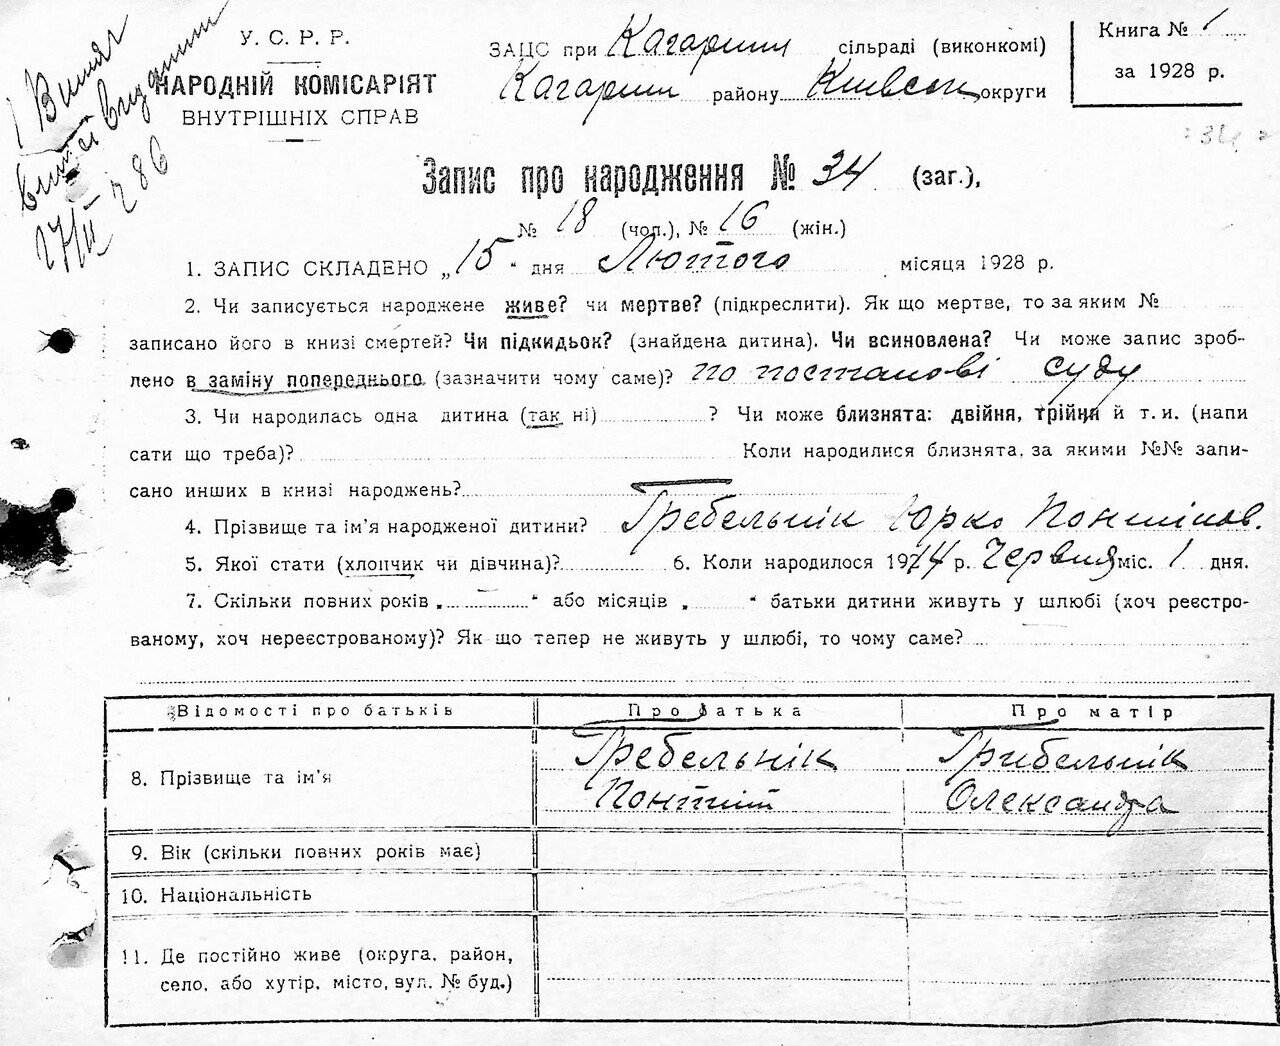 У. С. Р. Р.
НАРОДНІЙ КОМІСАРІЯТ
ВНУТРІШНІХ СПРАВ
ЗАЦС при Кагарлик сільраді (виконкомі)
Кагарлик району Київськ округи
Книга № 1
за 1928 р.
34
Запис про народження № 34 (заг.),
№ 18 (чол.), № 16 (жін.)
1. ЗАПИС СКЛАДЕНО „15“ дня Лютого місяця 1928 р.
2. Чи записується народжене живе? чи мертве? (підкреслити). Як що мертве, то за яким №
записано його в книзі смертей? Чи підкидьок? (знайдена дитина). Чи всиновлена? Чи може запис зроб-
лено в заміну попереднього (зазначити чому саме)? по постанові суду
3. Чи народилась одна дитина (так ні) ? Чи може близнята: двійня, трійня й т. и. (напи
сати що треба)? Коли народилися близнята, за якими №№ запи-
сано инших в книзі народжень?
4. Прізвище та ім'я народженої дитини? Гребельнік Юрко
5. Якої стати (хлопчик чи дівчина)? 6. Коли народилося 1914 р. Червня міс. 1 дня.
7. Скільки повних років „ “ або місяців „ “ батьки дитини живуть у шлюбі (хоч реєстро-
ваному, хоч нереєстрованому)? Як що тепер не живуть у шлюбі, то чому саме?
Відомості про батьків Про батька Про матір
8. Прізвище та ім'я
Гребельнік Грибельнік
Олександра
9. Вік (скільки повних років має)
10. Національність
11. Де постійно живе (округа, район,
село, або хутір, місто, вул. № буд.)